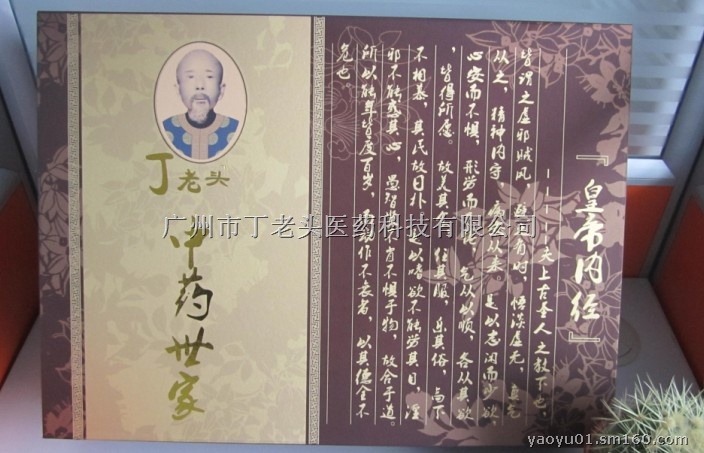 『皇帝内经』
————夫上古圣人之教下也，
皆谓之虚邪贼风，避之有时，恬淡虚无，真气
从之，精神内守，病安从来。是以志闲而少欲，
心安而不惧，形劳而不倦，气从以顺，各从其欲
，皆得所愿。故美其食，任其服，乐其俗，高下
不相慕，其民故日朴。是以嗜欲不能劳其目，淫
邪不能惑其心，愚智贤不肖不惧于物，故合于道。
所以能年皆度百岁，而动作不衰者，以其德全不
危也。
丁老头
中药世家
广州市丁老头医药科技有限公司
yaoyu01.sm160.com